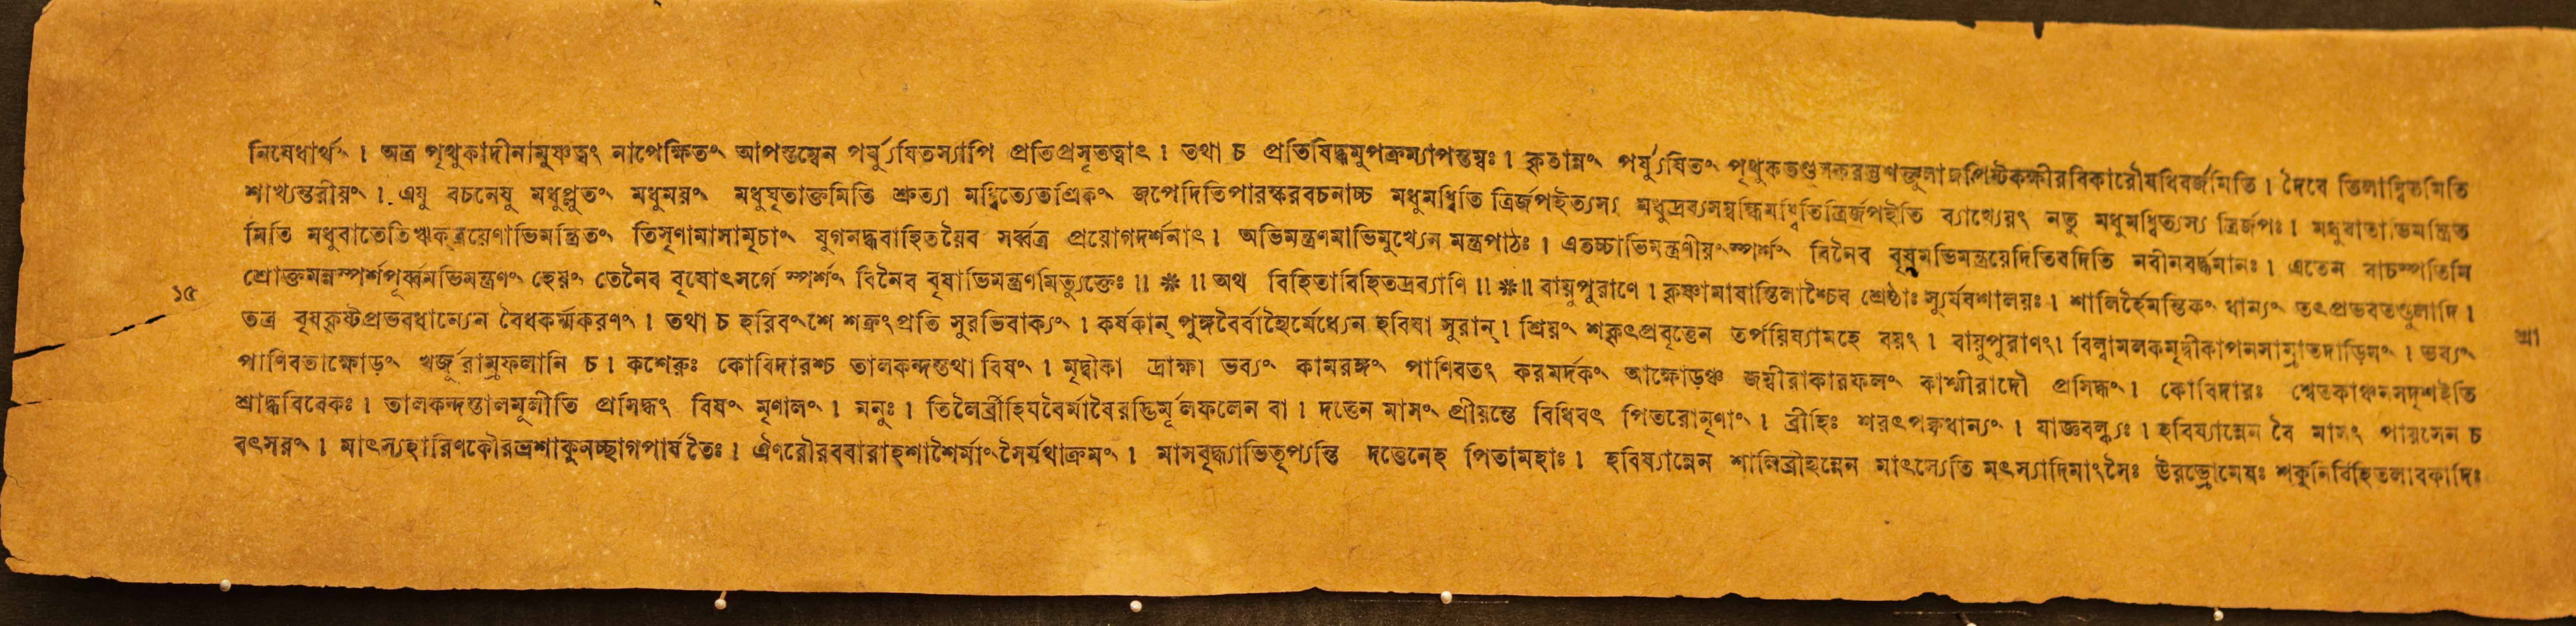 নিষেধার্থং । অত্র পৃথুকাদীনামুষ্ণত্বং নাপেক্ষিতং আপস্তম্বেন পর্য্যুষিতস্যাপি প্রতিপ্রসূতত্বাৎ । তথা চ প্রতিষিদ্ধমুপক্রম্যাপস্তম্বঃ । কৃতান্নং পর্য্যুষিতং পৃথুকতণ্ডুলকরম্ভ পিষ্টকক্ষীরবিকারৌষধিবর্জমিতি । দৈবে তিলান্বিতমিতি
শাখ্যন্তরীয়ং । এষু বচনেষু মধুপ্লুতং মধুময়ং মধুঘৃতাক্তমিতি শ্রুত্যা মধ্বিত্যেতত্রিকং জপেদিতিপারস্করবচনাচ্চ মধুমধ্বিতি ত্রির্জপইত্যস্য মধুদ্রব্যসম্বন্ধিমধ্বিতিত্রির্জপইতি ব্যাখ্যেয়ং নতু মধুমধ্বিত্যস্য ত্রির্জপঃ । মধুবাতাভিমন্ত্রিত
মিতি মধুবাতেতিঋকত্রয়েণাভিমন্ত্রিতং তিসৃণামাসামৃচাং যুগনদ্ধবাহিতয়ৈব সর্ব্বত্র প্রয়োগদর্শনাৎ । অভিমন্ত্রণমাভিমুখ্যেন মন্ত্রপাঠঃ । এতচ্চাভিমন্ত্রণীয়ংস্পর্শং বিনৈব বৃষমভিমন্ত্রয়েদিতিবদিতি নবীনবর্দ্ধমানঃ । এতেন বাচস্পতিমি
শ্রোক্তমন্নস্পর্শপূর্ব্বমভিমন্ত্রণং হেয়ং তেনৈব বৃষোৎসর্গে স্পর্শং বিনৈব বৃষাভিমন্ত্রণমিত্যুক্তেঃ ॥ * ॥ অথ বিহিতাবিহিতদ্রব্যাণি ॥ * ॥ বায়ুপুরাণে । কৃষ্ণামাষাস্তিলাশ্চৈব শ্রেষ্ঠাঃ স্যুর্যবশালয়ঃ । শালির্হৈমন্তিকং ধান্যং তৎপ্রভবতণ্ডুলাদি ।
১৫
তত্র বৃষকৃষ্টপ্রভবধান্যেন বৈধকর্ম্মকরণং । তথা চ হরিবংশে শক্রংপ্রতি সুরভিবাক্যং । কর্ষকান্ পুঙ্গবৈর্বাহ্যৈর্মেধ্যেন হবিষা সুরান্ । শ্রিয়ং শকৃৎপ্রবৃত্তেন তর্পয়িষ্যামহে বয়ং । বায়ুপুরাণং । বিল্বামলকমৃদ্বীকাপনসাম্রাতদাড়িমং । ভব্যং
শ্রা
পাণিবতাক্ষোড়ং খর্জূরাম্রফলানি চ । কশেরুঃ কোবিদারশ্চ তালকন্দস্তথা বিষং । মৃদ্বীকা দ্রাক্ষা ভব্যং কামরঙ্গং পাণিবতং করমর্দকং আক্ষোড়ঞ্চ জম্বীরাকারফলং কাশ্মীরাদৌ প্রসিদ্ধং । কোবিদারঃ শ্বেতকাঞ্চনসদৃশইতি
শ্রাদ্ধবিবেকঃ । তালকন্দস্তালমূলীতি প্রসিদ্ধং বিষং মৃণালং । মনুঃ । তিলৈর্ব্রীহিযবৈর্মাষৈরদ্ভির্মূলফলেন বা । দত্তেন মাসং প্রীয়ন্তে বিধিবৎ পিতরোনৃণাং । ব্রীহিঃ শরৎপক্বধান্যং । যাজ্ঞবল্ক্যঃ । হবিষ্যান্নেন বৈ মাসং পায়সেন চ
বৎসরং । মাৎস্যহারিণকৌরভ্রশাকুনচ্ছাগপার্ষতৈঃ । ঐণরৌরববারাহশাশৈর্মাংসৈর্যথাক্রমং । মাসবৃদ্ধ্যাভিতৃপ্যন্তি দত্তেনেহ পিতামহাঃ । হবিষ্যান্নেন শালিব্রীহ্যন্নেন মাৎস্যেতি মৎস্যাদিমাংসৈঃ উরভ্রোমেষঃ শকুনির্বিহিতলাবকাদিঃ